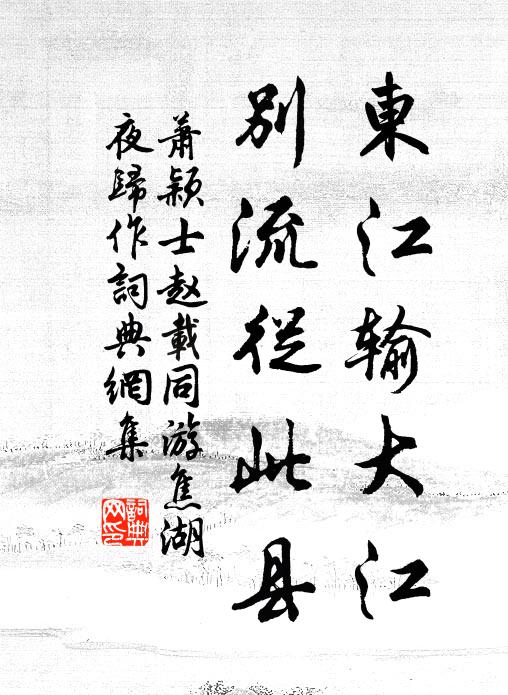 東江输大江
別流從此县
萧颖士赵載同游焦湖
夜歸作詞典網集
詞典
网印